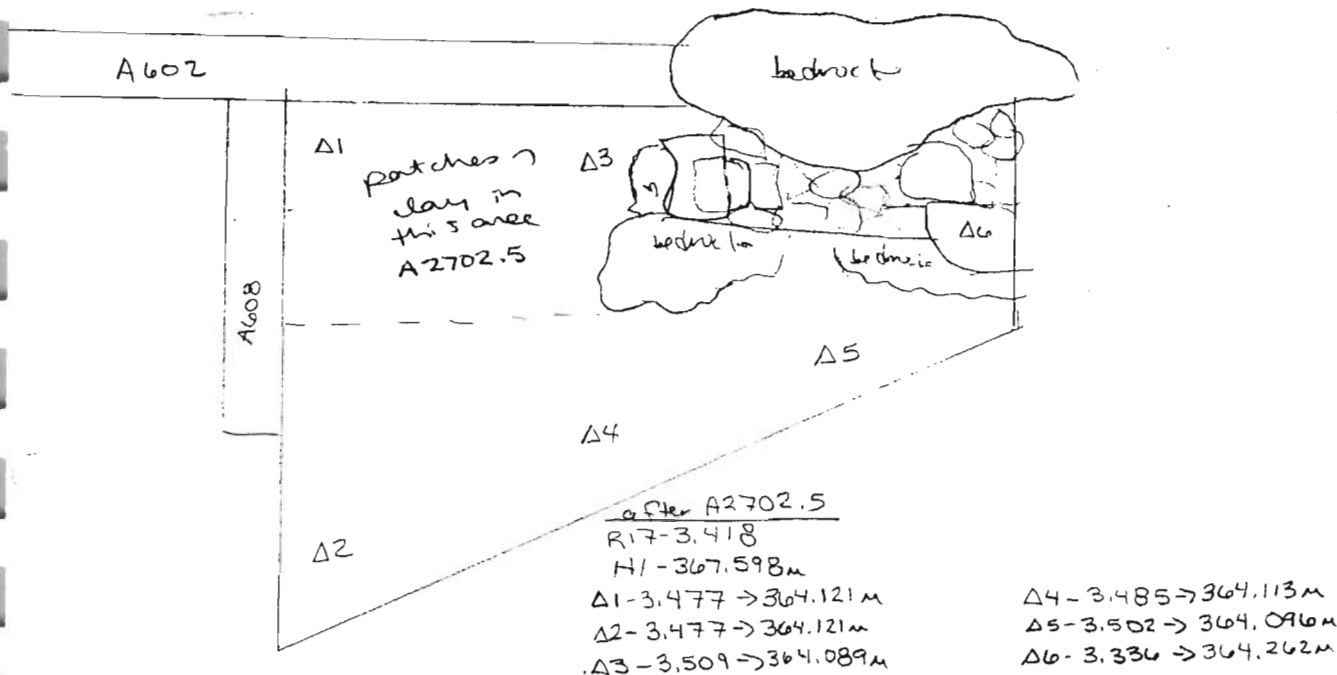 A602
bedrock
Δ1
patches of
clay in
this area
A2702.5
Δ3
bedrock
bedrock
Δ6
A608
Δ5
Δ4
Δ2
after A2702.5
R17-3.418
HI-367.598m
Δ1-3.477->364.121m
Δ2-3.477->364.121m
Δ3-3.509->364.089m
Δ4-3.485->364.113m
Δ5-3.502->364.096m
Δ6-3.336->364.262m